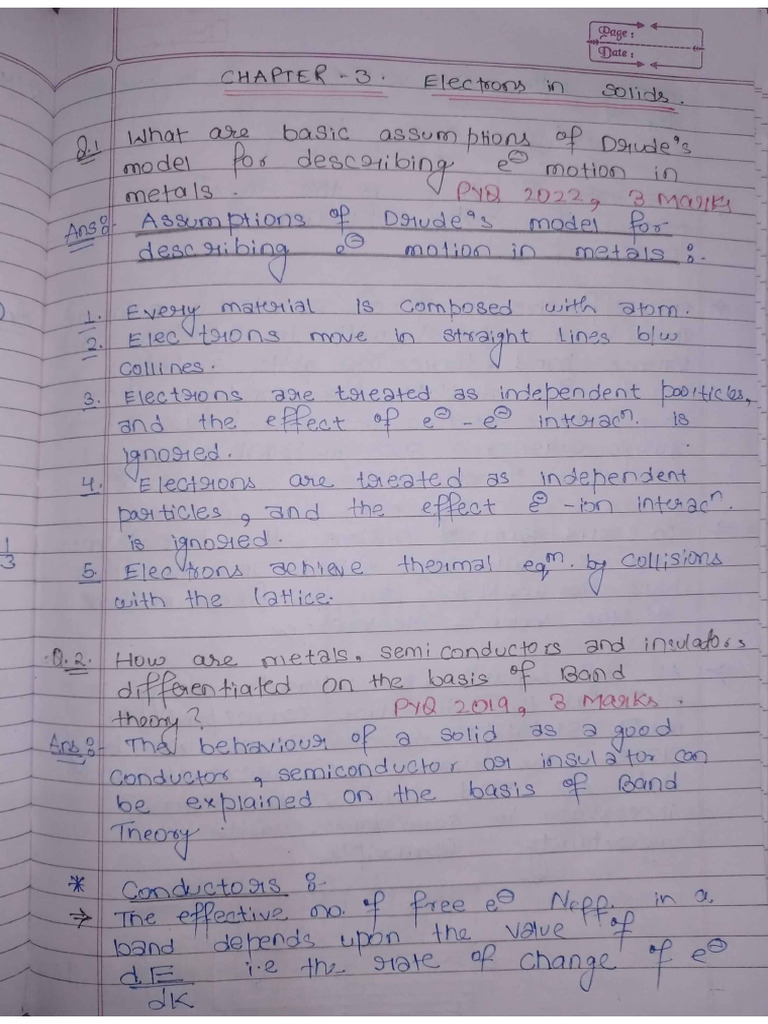 Page:
Date:
CHAPTER - 3. Electrons in Solids.
Q.1 What are basic assumptions of Drude's
model for describing e⊖ motion in
metals. PYQ 2022, 3 Marks
Ans:- Assumptions of Drude's model for
describing e⊖ motion in metals :-
1. Every material is composed with atom.
2. Electrons move in straight lines b/w
collines.
3. Electrons are treated as independent particles,
and the effect of e⊖ - e⊖ interacⁿ. is
ignored.
4. Electrons are treated as independent
particles, and the effect e⊖ -ion interacⁿ.
is ignored.
1/3
5. Electrons achieve thermal eqᵐ. by collisions
with the lattice.
Q.2. How are metals, semiconductors and insulators
differentiated on the basis of Band
theory? PYQ 2019, 3 Marks.
Ans:- The behaviour of a solid as a good
conductor, semiconductor or insulator can
be explained on the basis of Band
Theory
* Conductors :-
⇒ The effective no. of free e⊖ Neff. in a
band depends upon the value of
dE/dK i.e the rate of change of e⊖